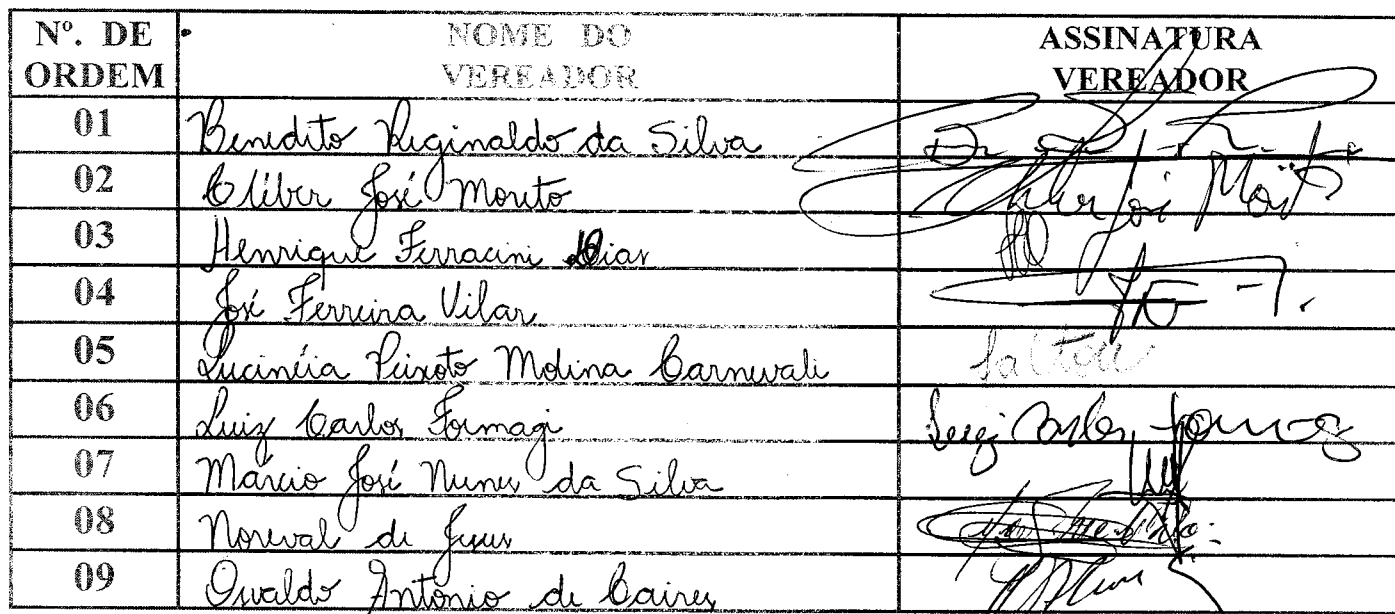 Nº. DE ORDEM NOME DO VEREADOR ASSINATURA VEREADOR
01 Benedito Reginaldo da Silva
02 Cléber José Moreto Cleber José
03 Henrique Ferracini Dias
04 José Ferreira Vilar
05 Lucinéia Peixoto Molina Carnevali faltou
06 Luiz Carlos Formagi Luiz Carlos
07 Márcio José Nunes da Silva
08 Noreval de Jesus
09 Osvaldo Antonio de Caires